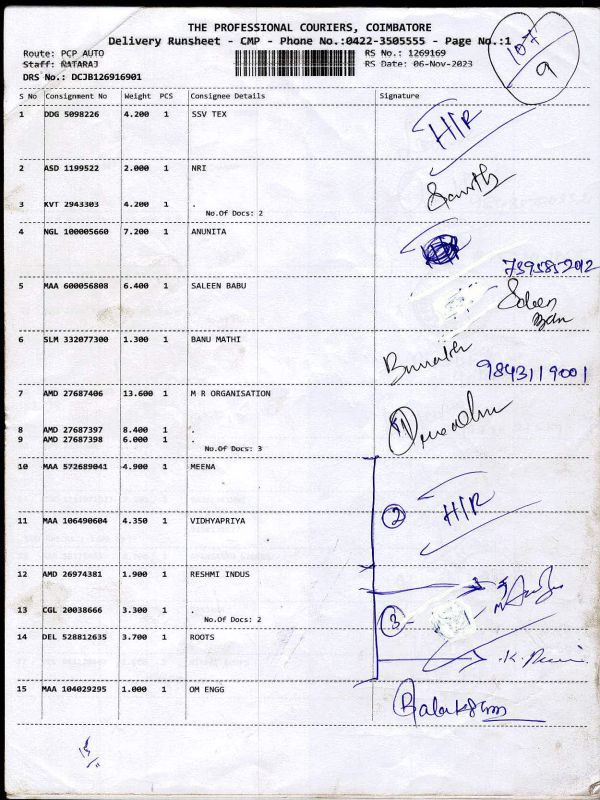 THE PROFESSIONAL COURIERS, COIMBATORE
Delivery Runsheet - CMP - Phone No.:0422-3505555 - Page No.:1
Route: PCP AUTO RS No.: 1269169
Staff: NATARAJ RS Date: 06-Nov-2023
DRS No.: DCJB126916901
107
9
S No Consignment No Weight PCS Consignee Details Signature
1 DDG 5098226 4.200 1 SSV TEX H/R
2 ASD 1199522 2.000 1 NRI
3 KVT 2943303 4.200 1 .
No.Of Docs: 2
4 NGL 100005660 7.200 1 ANUNITA
7395852012
5 MAA 600056808 6.400 1 SALEEN BABU Saleen
6 SLM 332077300 1.300 1 BANU MATHI
9843119001
7 AMD 27687406 13.600 1 M R ORGANISATION
8 AMD 27687397 8.400 1 .
9 AMD 27687398 6.000 1 .
No.Of Docs: 3
10 MAA 572689041 4.900 1 MEENA
2 H/R
11 MAA 106490604 4.350 1 VIDHYAPRIYA
12 AMD 26974381 1.900 1 RESHMI INDUS
13 CGL 20038666 3.300 1 .
No.Of Docs: 2
3
14 DEL 528812635 3.700 1 ROOTS
15 MAA 104029295 1.000 1 OM ENGG